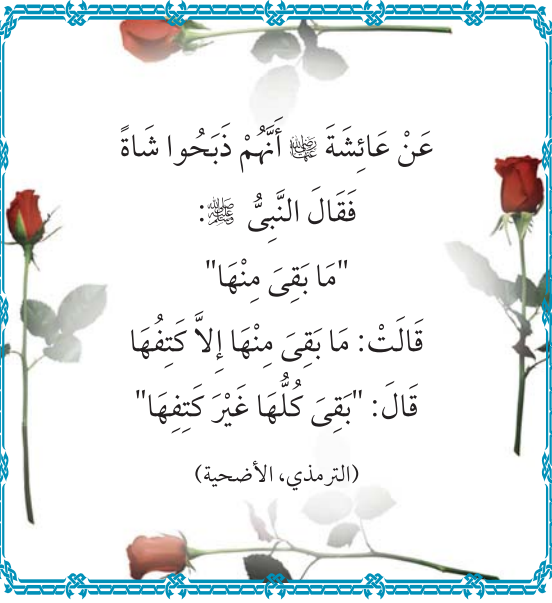 عَنْ عَائِشَةَ ﵂ أَنَّهُمْ ذَبَحُوا شَاةً
فَقَالَ النَّبِىُّ ﷺ:
"مَا بَقِىَ مِنْهَا"
قَالَتْ: مَا بَقِىَ مِنْهَا إِلاَّ كَتِفُهَا
قَالَ: "بَقِىَ كُلُّهَا غَيْرَ كَتِفِهَا"
(الترمذي، الأضحية)